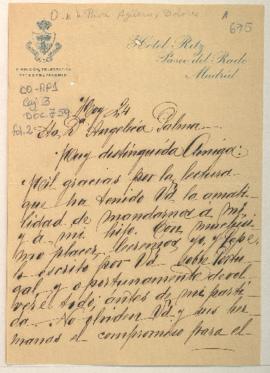 D. de la Riva Agüero, Dolores
A
675
Hôtel Ritz
Paseo del Prado
Madrid
DIRECCIÓN TELEGRÁFICA
RITZOTEL MADRID
CO-RP1
Caj 3
DOC 759
Fol. 2
Hoy 24
Sta. Dª Angélica Palma
Muy distinguida Amiga:
Mil gracias por la lectura
que ha tenido Vd. la amabi-
lidad de mandarnos a mi
y a mi hijo. Con muchísi-
mo placer, leeremos, yo, y Pepe
lo escrito por Vd. sobre Portu-
gal, y oportunamente devol-
veré todo, antes de mi parti-
da. No olviden Vd. y sus her-
manas el compromiso para el